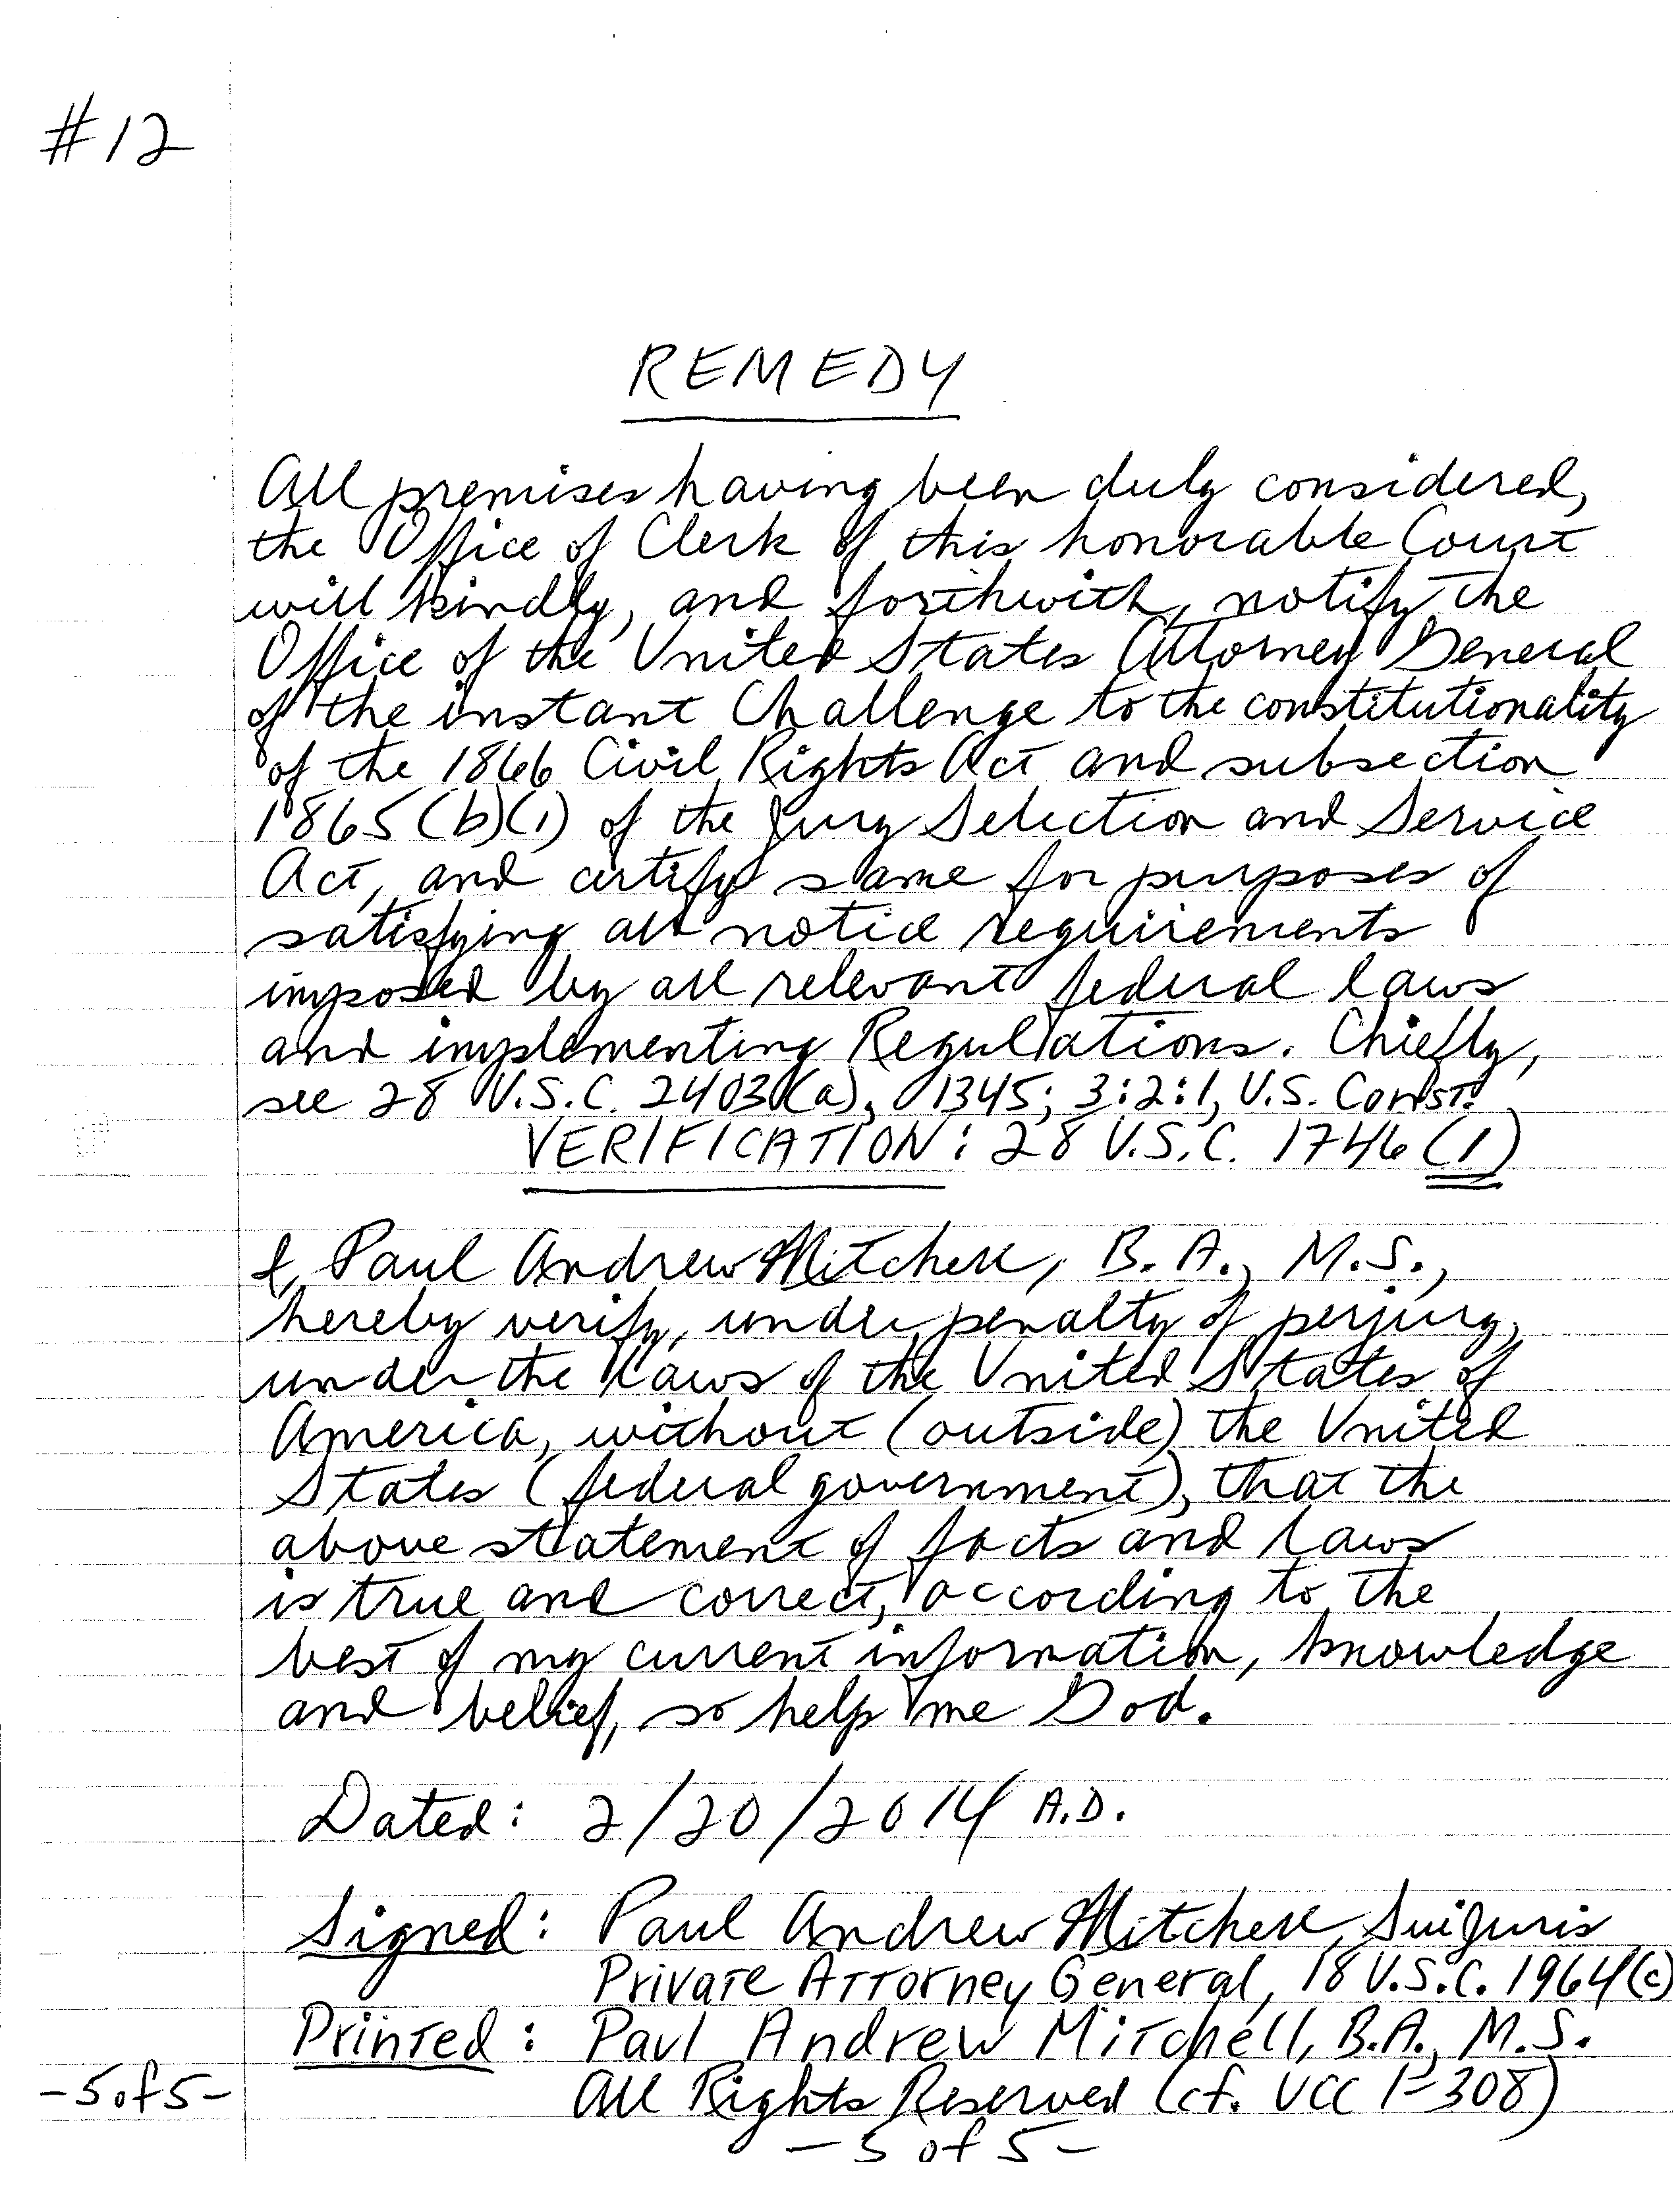 #12
REMEDY
All premises having been duly considered,
the Office of Clerk of this honorable Court
will kindly, and forthwith, notify the
Office of the United States Attorney General
of the instant Challenge to the constitutionality
of the 1866 Civil Rights Act and subsection
1865(b)(1) of the Jury Selection and Service
Act, and certify same for purposes of
satisfying all notice requirements
imposed by all relevant federal laws
and implementing Regulations. Chiefly,
see 28 U.S.C. 2403(a), 1345; 3:2:1, U.S. Const.
VERIFICATION: 28 U.S.C. 1746(1)
I, Paul Andrew Mitchell, B.A., M.S.,
hereby verify, under penalty of perjury,
under the laws of the United States of
America, without (outside) the United
States (federal government), that the
above statement of facts and laws
is true and correct, according to the
best of my current information, knowledge
and belief, so help me God.
Dated: 2/20/2014 A.D.
Signed: Paul Andrew Mitchell, Sui Juris
Private Attorney General, 18 U.S.C. 1964(c)
Printed: Paul Andrew Mitchell, B.A., M.S.
All Rights Reserved (cf. UCC 1-308)
-5 of 5-
-5 of 5-